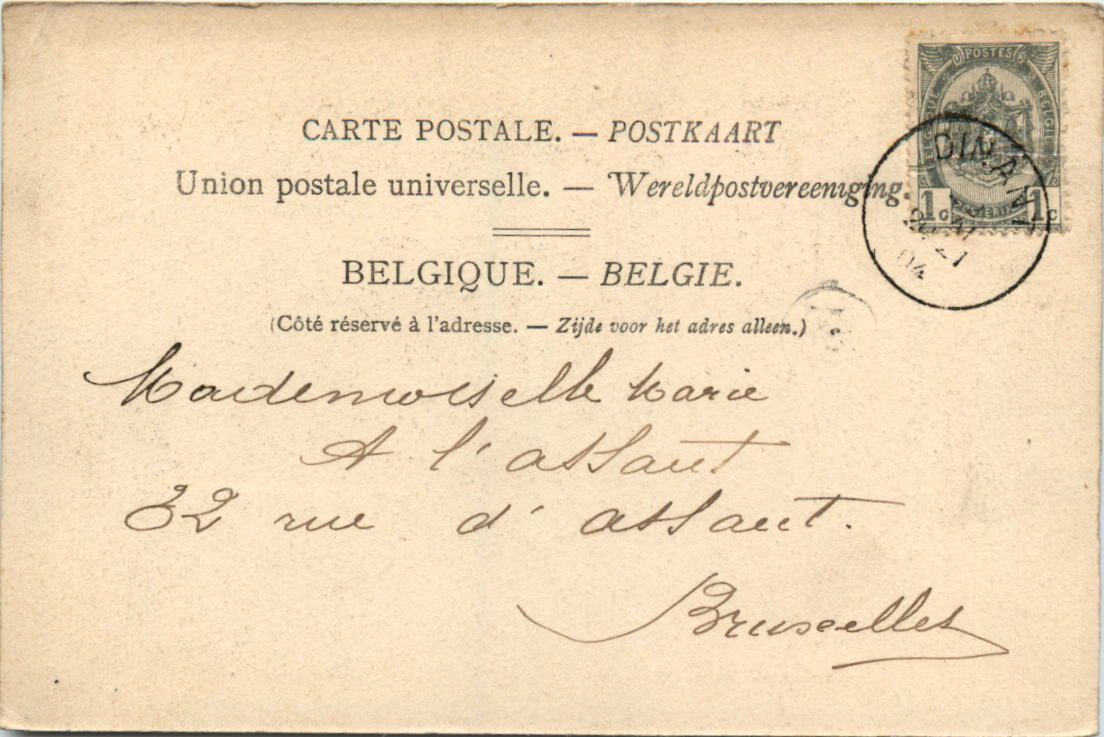 POSTES
BELGIQUE BELGIË
1 c 1 c
DINANT
21
04
CARTE POSTALE. — POSTKAART
Union postale universelle. — Wereldpostvereeniging
BELGIQUE. — BELGIE.
(Côté réservé à l'adresse. — Zijde voor het adres alleen.)
Mademoiselle Marie
A l'assaut
32 rue d'assaut.
Bruxelles